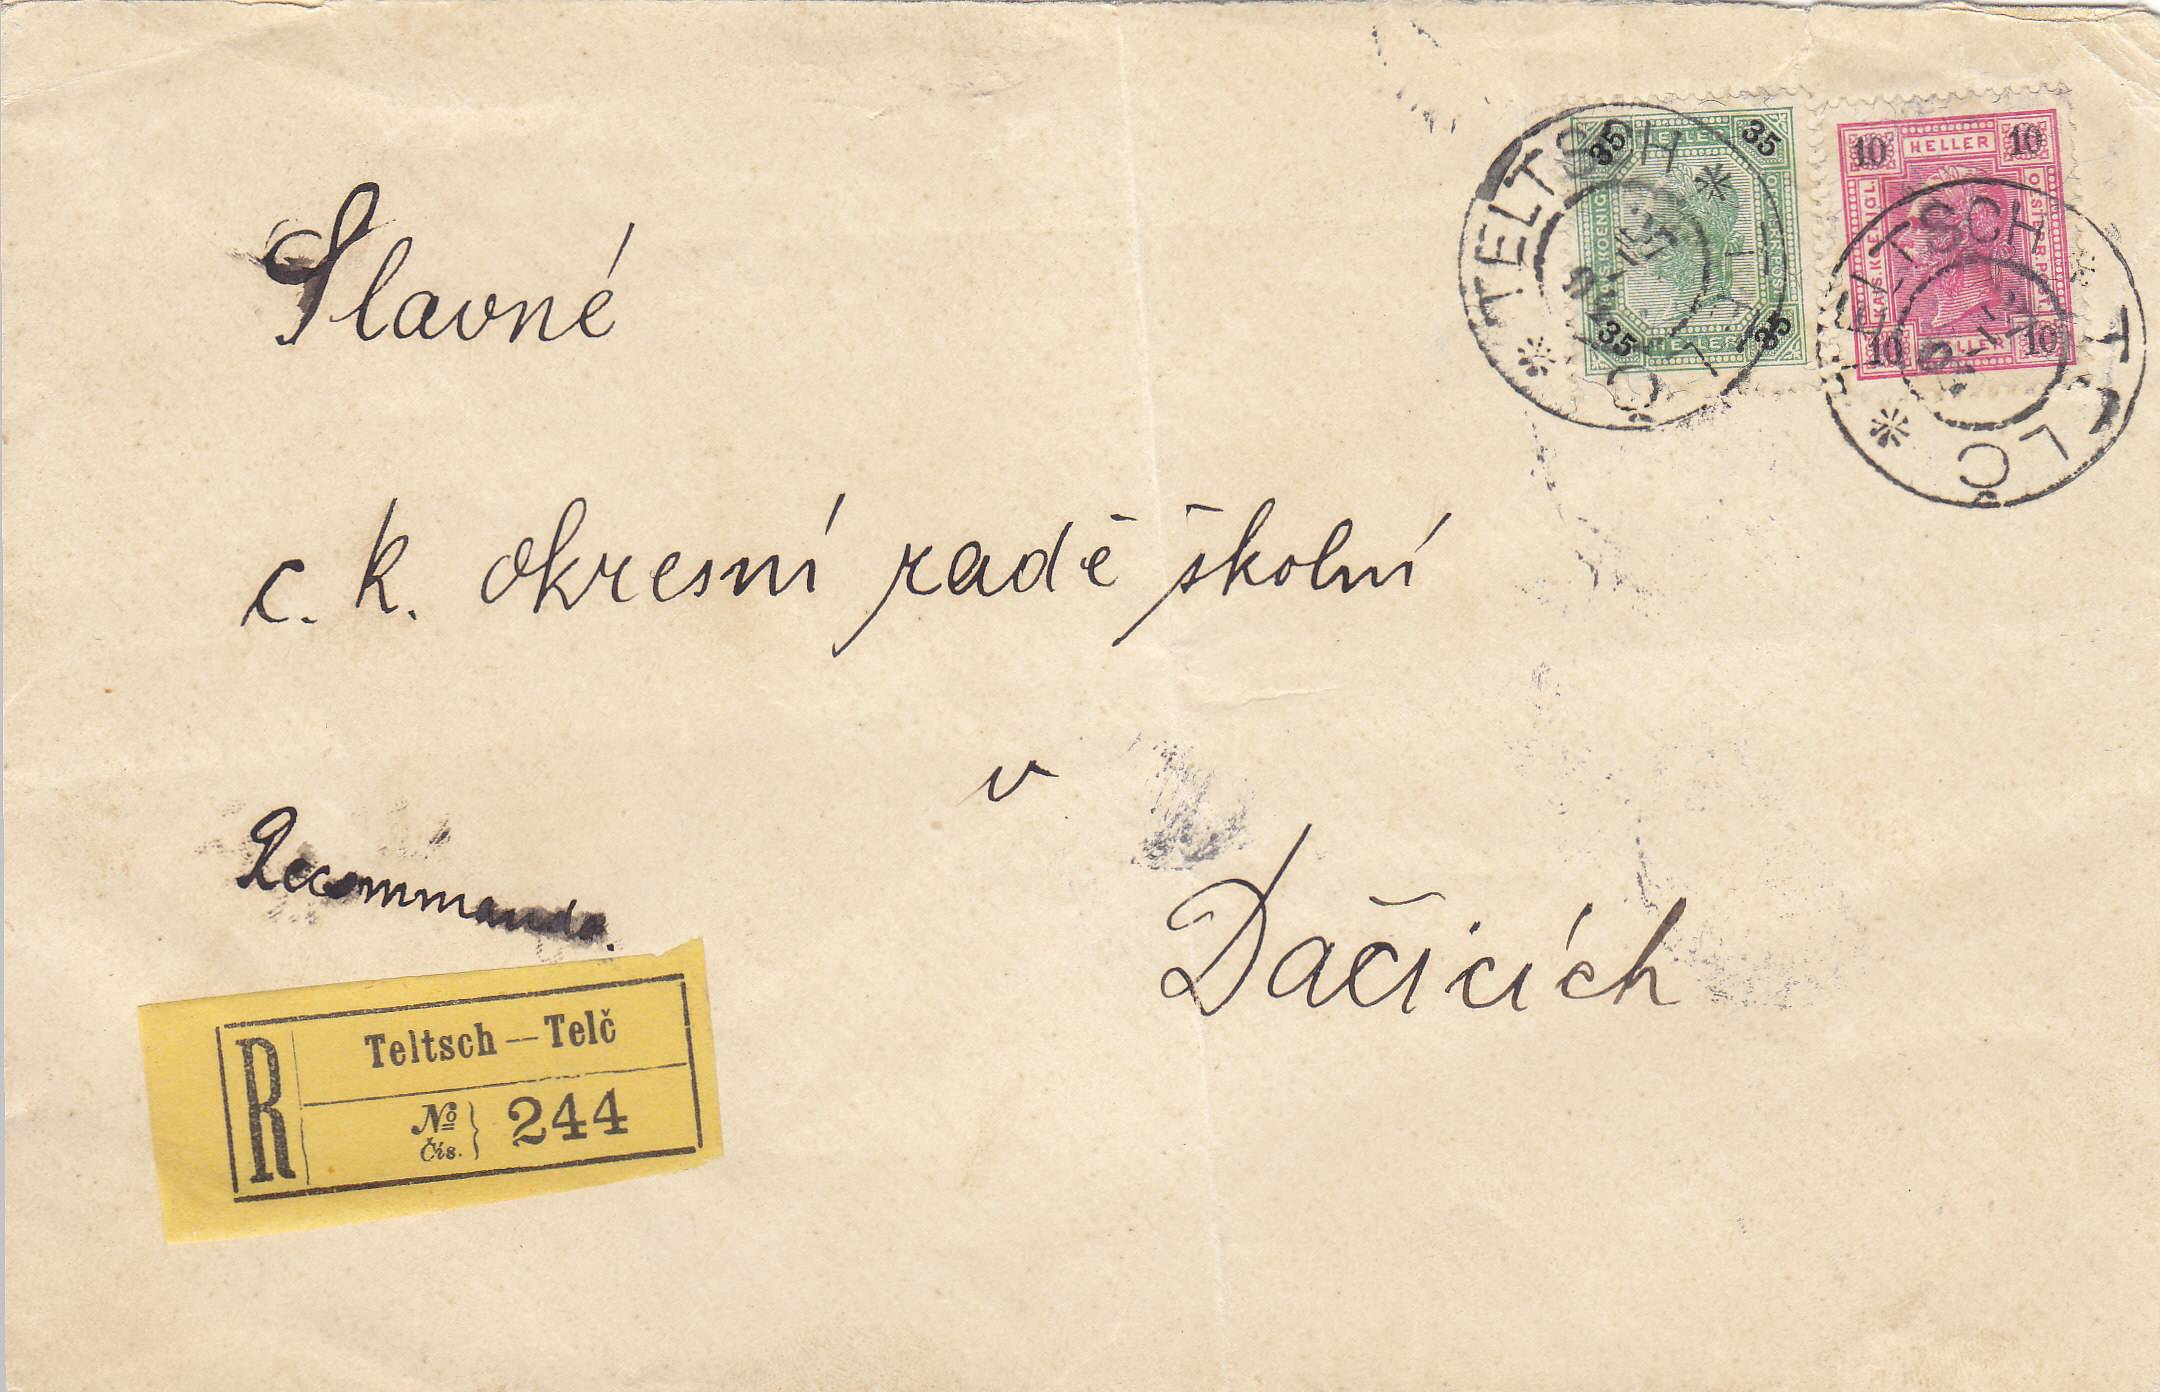 Slavné
c. k. okresní radě školní
v
Dačicích
Recommando.
R
Teltsch — Telč
No
Čis. } 244
35 HELLER 35
KAIS. KOENIGL.
OESTERR. POST.
35 HELLER 35
10 HELLER 10
KAIS. KOENIGL.
OESTERR. POST.
10 HELLER 10
* TELTSCH * TELČ
TELTSCH * TELČ *